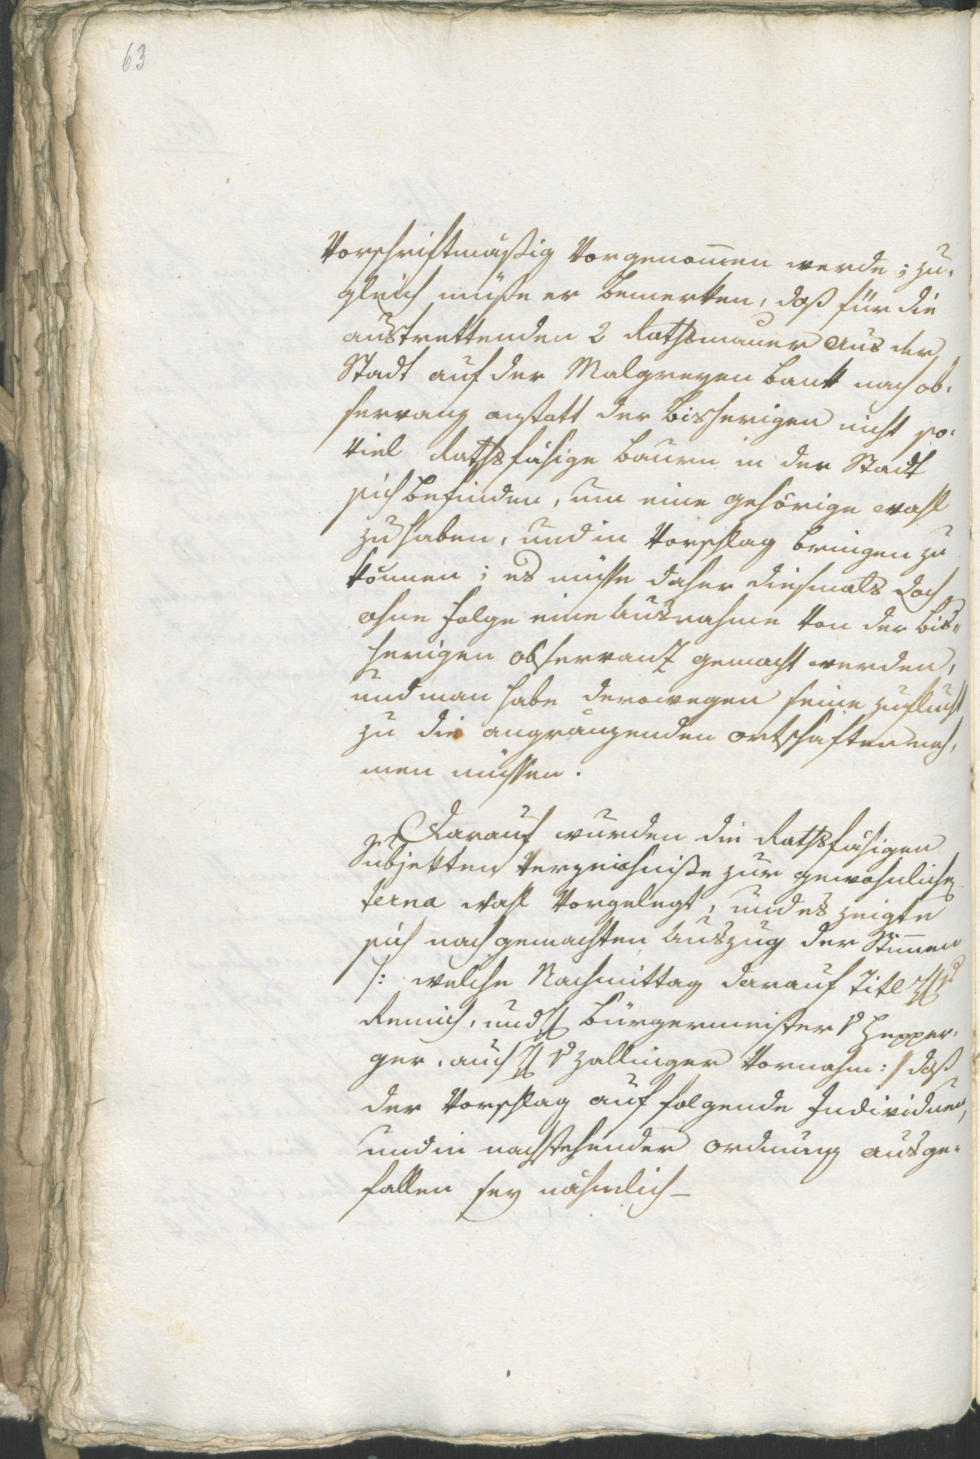 63
Vorschriftmäßig Vorgenom̅en werde; zu-
gleich müße er bemerken, daß für die
austrettenden 2 Rathsmäner aus der
Stadt auf der Malgreyen bank nach ob-
servanz anstatt der bisherigen nicht so-
viel Rathsfähige bauern in der Stadt
sich befinden, um eine gehörige wahl
zu haben, und in Vorschlag bringen zu
können; es müsse daher diesmals doch
ohne folge eine Ausnahme Von der bis-
herigen observanz gemacht werden,
und man habe derowegen seine zuflucht
zu die angränzenden ortschaften neh-
men müssen.
Darauf wurden die Rathsfähigen
Subjekten Verzeichniße zur gewöhnlichen
terna wahl Vorgelegt, und es zeigte
sich nach gemachten Auszug der Stim̅en
/: welche Nachmittag darauf Titl H
Remich, und H bürgermeister v Hepper-
ger, auch H v Zallinger Vornahm :/ daß
der Vorschlag auf folgende Individuen,
und in nachstehender ordnung ausge-
fallen sey nähmlich –